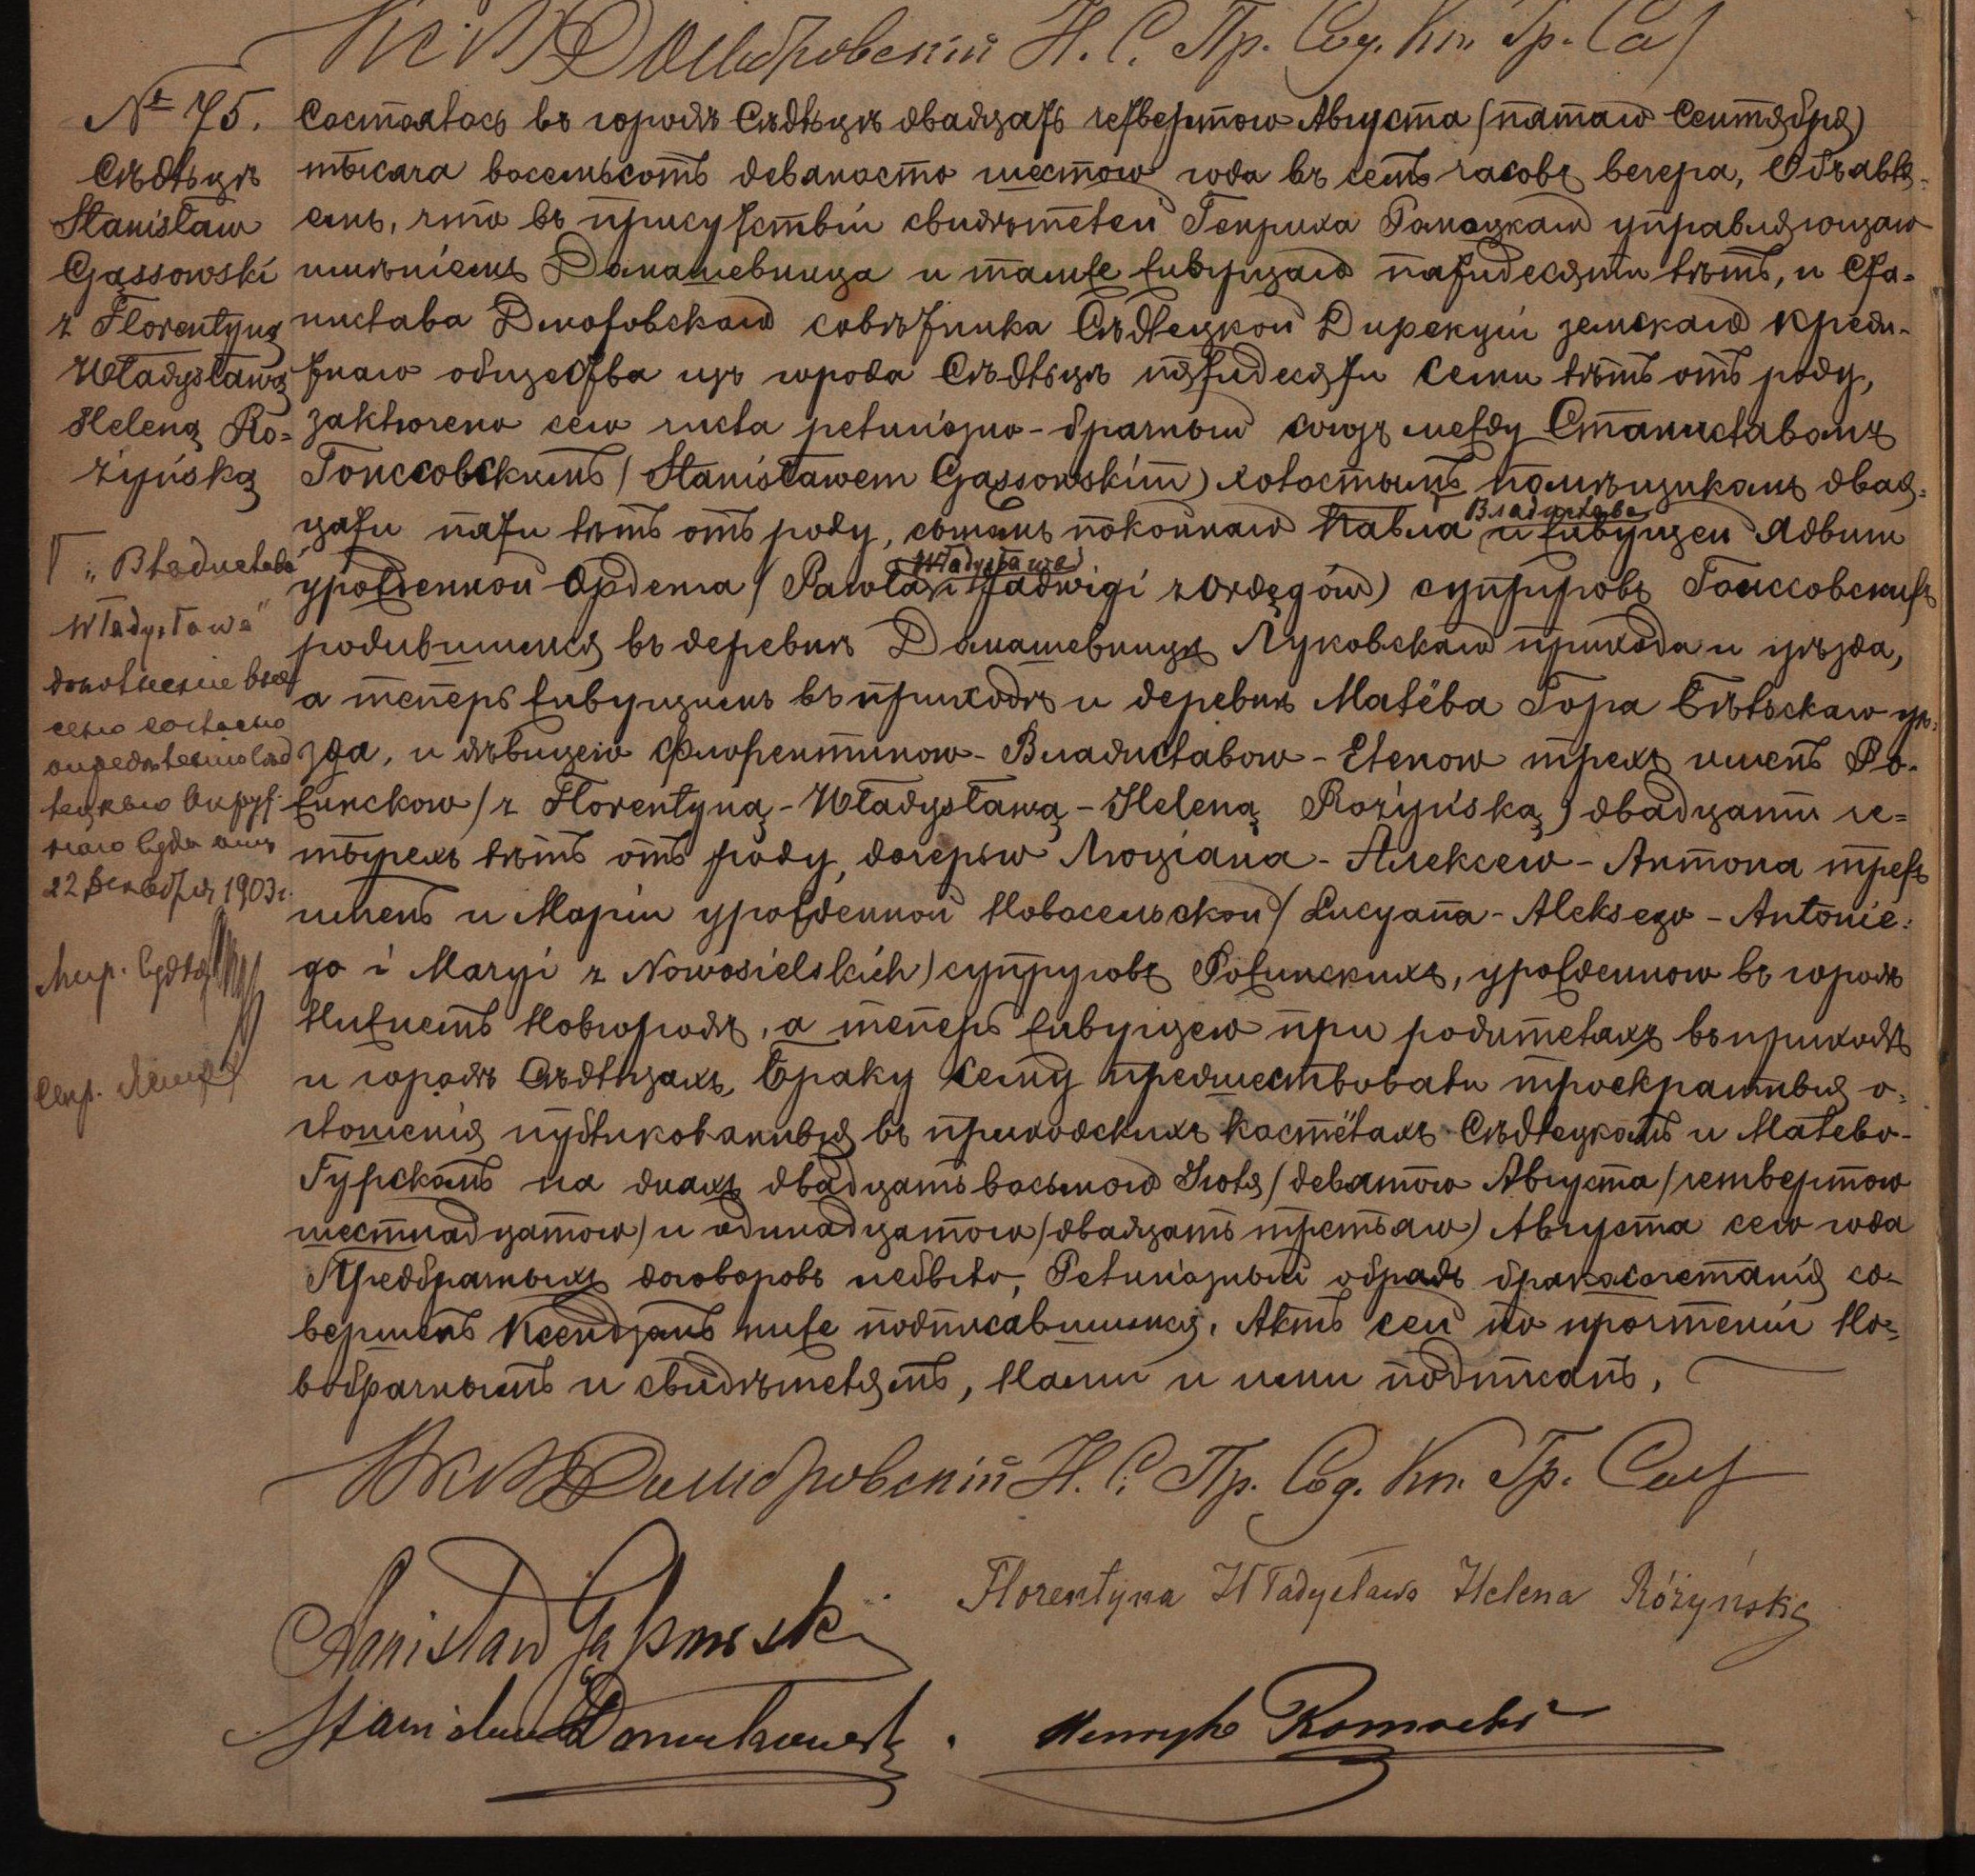 Домбровскій Н. С. Пр. Сод. Кн. Гр. Сос
№ 75.
Сѣдльцѣ
Stanisław
Gąssowski
z Florentyną
Władysławą
Heleną Ro-
żyńską
Г „Владислава
Władysława"
дополненіе внес
сено согласно
опредѣленію Сѣд
лецкаго Окруж-
наго Суда отъ
22 Декабря 1903 г.
Мир. Судья
Секр.
Состоялось въ городѣ Сѣдльцѣ двадцать четвертого Августа (пятаго Сентября)
тысяча восемьсотъ девяносто шестого года въ семь часовъ вечера, Объявля-
емъ, что въ присутствіи свидѣтелей Генриха Ромоцкаго управляющаго
имѣніемъ Домашевница и тамже живущаго пятидесяти лѣтъ, и Ста-
нислава Дмоховскаго совѣтника Сѣдлецкой Дирекціи земскаго креди-
тнаго общества изъ города Сѣдльцѣ пятидесяти семи лѣтъ отъ роду,
заключено сего числа религіозно-брачный союзъ между Станиславомъ
Гонссовскимъ (Stanisławem Gąssowskim) холостымъ помѣщикомъ двад-
цати пяти лѣтъ отъ роду, сыномъ покойнаго Павла Владислава и живущей Ядвиги
урожденной Орденга (Pawła Władysława i Jadwigi z Ordęgów) супруговъ Гонссовскихъ
родившимся въ деревнѣ Домашевницѣ Луковскаго прихода и уѣзда,
а теперь живущимъ въ приходѣ и деревнѣ Малёва Гора Бѣльскаго уѣ-
зда, и дѣвицею Флорентиною-Владиславою-Еленою трехъ именъ Ро-
жинскою (z Florentyną-Władysławą-Heleną Rożyńską) двадцати че-
тырехъ лѣтъ отъ роду, дочерью Люціана-Алексего-Антона трехъ
именъ и Маріи урожденной Новосельской (Lucyana-Aleksego-Antonie-
go i Maryi z Nowosielskich) супруговъ Рожинскихъ, урожденною въ городѣ
Нижнемъ Новгородѣ, а теперь живущею при родителяхъ въ приходѣ
и городѣ Сѣдльцахъ, Браку сему предшествовали троекратныя о-
глошенія публикованныя въ приходскихъ костёлахъ Сѣдлецкомъ и Малево-
Гурскомъ на дняхъ двадцать восьмого Іюля (девятого Августа (четвертого
шестнадцатого) и одинадцатого (двадцать третьяго) Августа сего года
Предбрачныхъ договоровъ небыло, Религіозный обрядъ бракосочетанія со-
вершенъ Ксендзомъ ниже подписавшимся. Актъ сей по прочтеніи Но-
вобрачнымъ и свидѣтелямъ, Нами и ими подписанъ.
Домбровскій Н. С. Пр. Сод. Кн. Гр. Сос
Florentyna Władysława Helena Różyńska
Stanisław Gąssowski
Stanisław Dmochowski. Henryk Romocki